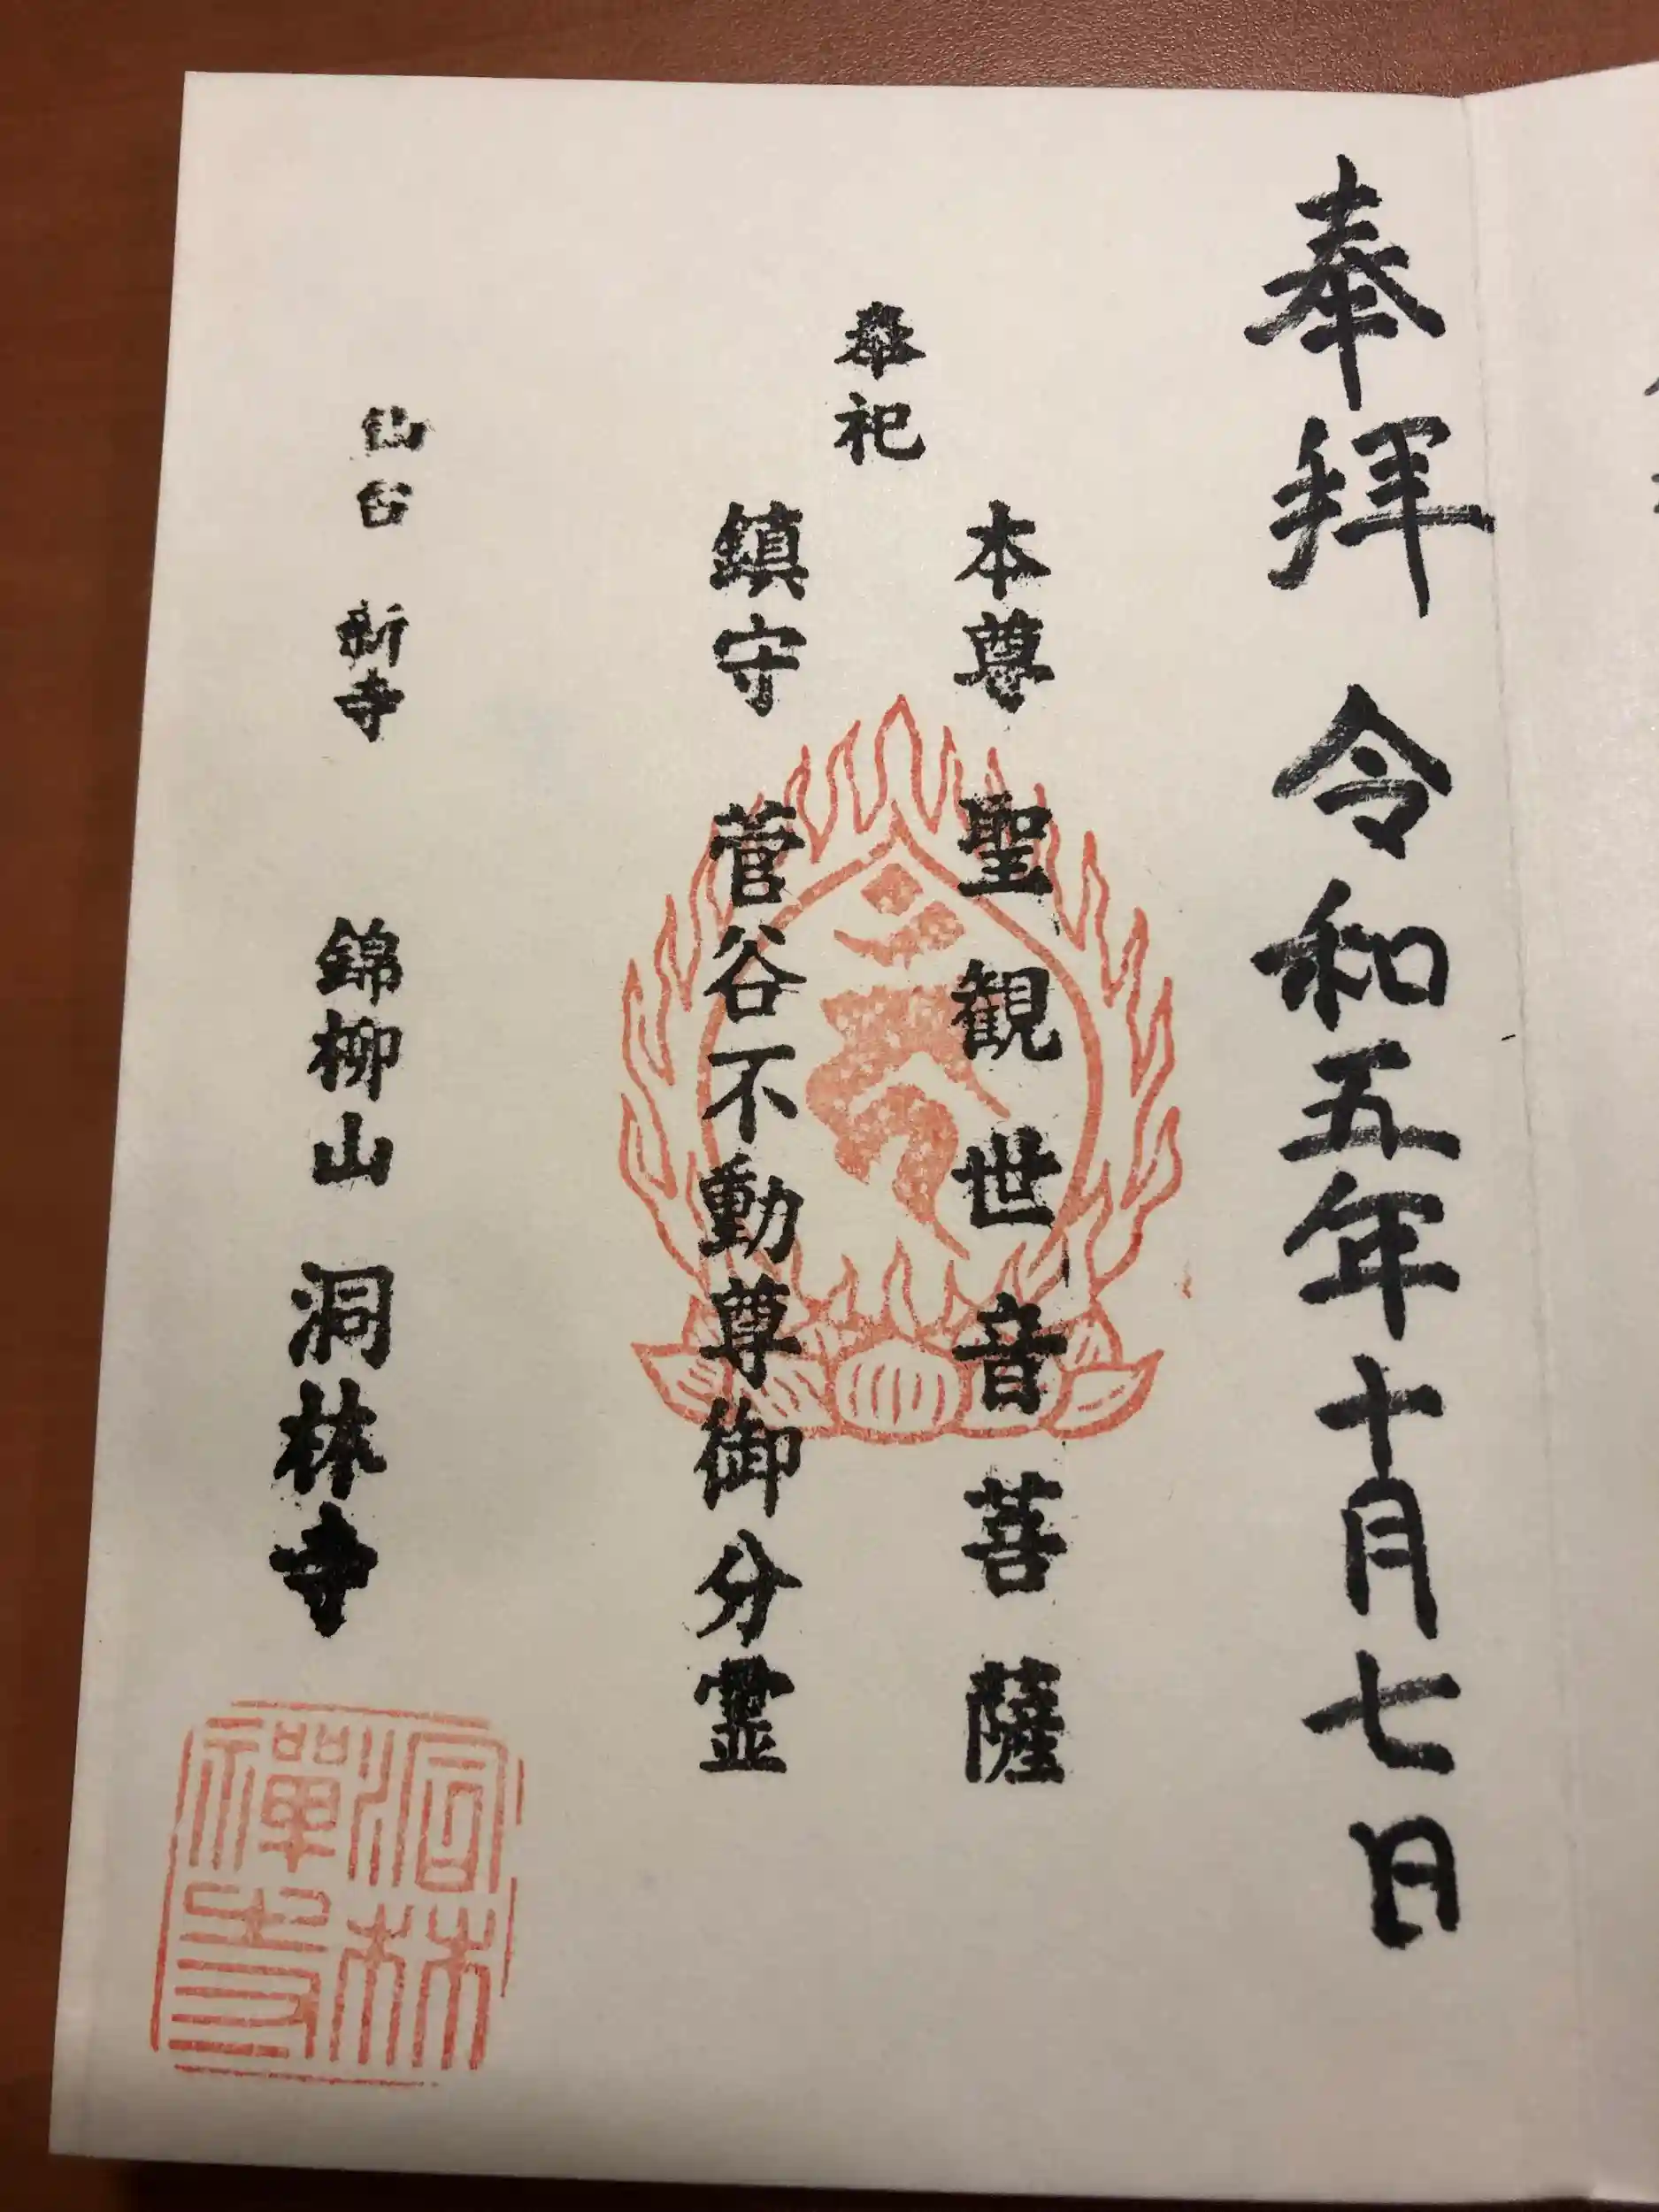 奉拝 令和五年十月七日
奉祀
本尊 聖観世音菩薩
鎮守 菅谷不動尊御分霊
仙台 新寺 錦柳山 洞林寺
洞林
禪寺